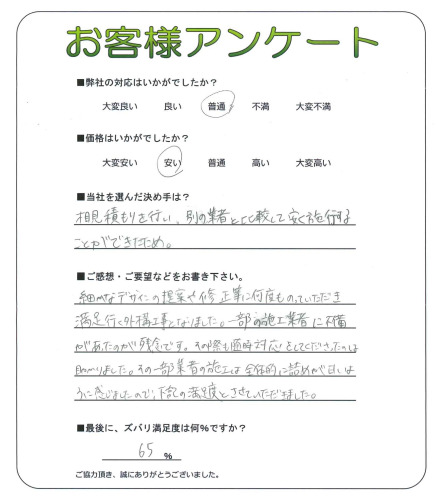 お客様アンケート
■弊社の対応はいかがでしたか？
大変良い 良い 普通 不満 大変不満
■価格はいかがでしたか？
大変安い 安い 普通 高い 大変高い
■当社を選んだ決め手は？
相見積もりを行い、別の業者と比較して安く施行する
ことができたため。
■ご感想・ご要望などをお書き下さい。
細かなデザインの提案や修正等に何度ものっていただき
満足行く外構工事となりました。一部の施工業者に不備
があったのが残念です。その際も随時対応をしてくださったのは
助かりました。その一部業者の施工は全体的に詰めが甘いよ
うに感じましたので、下記の満足度とさせていただきました。
■最後に、ズバリ満足度は何%ですか？
65 %
ご協力頂き、誠にありがとうございました。